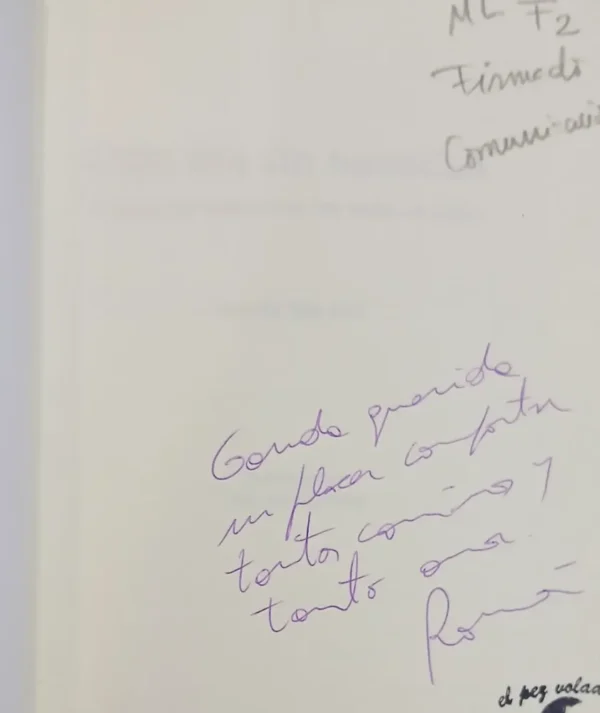 ML T2
Firmado
Comunicació
Gonda querida
un placer compartir
tantos caminos y
tanto
Román
el pez volad